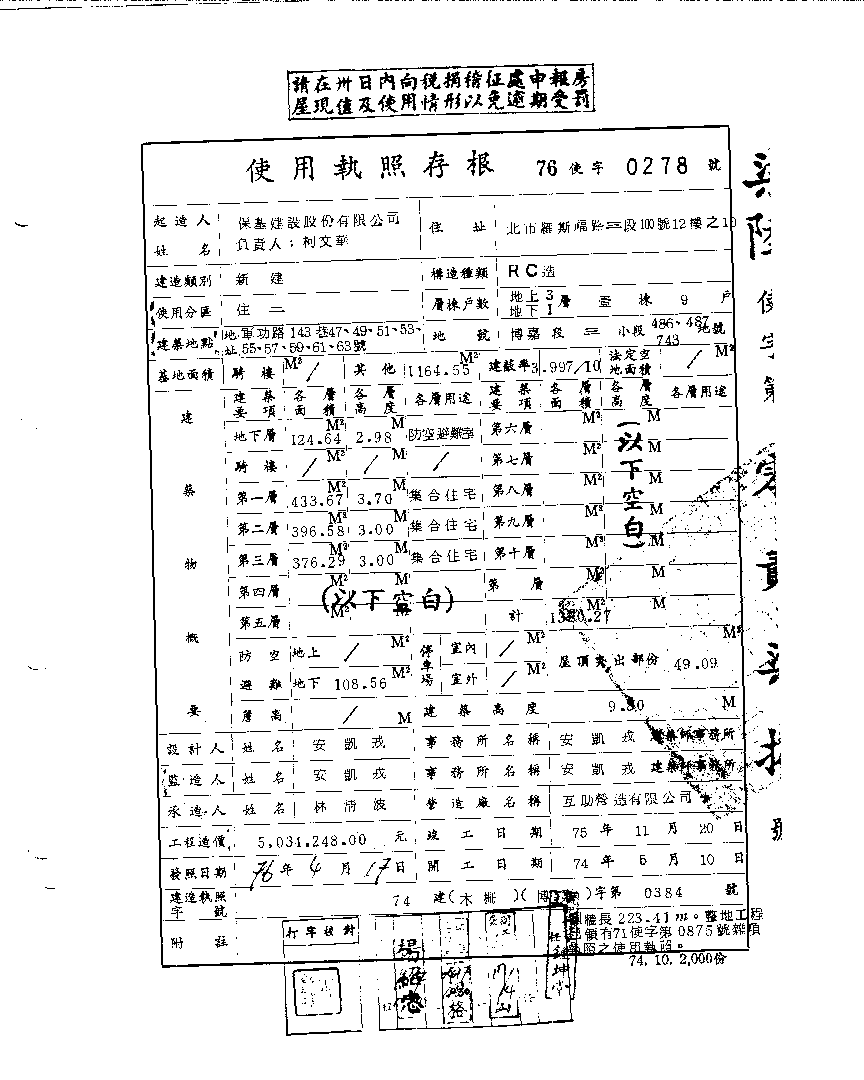 請在卅日內向稅捐稽征處申報房
屋現值及使用情形以免逾期受罰
使用執照存根 76 使字 0278 號
起造人 姓名 保基建設股份有限公司 負責人：利文華 住址 北市羅斯福路三段100號12樓之10
建造類別 新建 構造種類 RC造
使用分區 住二 層棟戶數 地上3 地下1 層 壹棟 9 戶
建築地點 地址 軍功路143巷47、49、51、53、55、57、59、61、63號 地號 博嘉段三小段 486、487 743 地號
基地面積 騎樓 M² / 其他 1164.55 M² 建蔽率 3.997/10 法定空地面積 / M²
建築物概要
建築要項 各層面積 各層高度 各層用途 建築要項 各層面積 各層高度 各層用途
地下層 124.64 M² 2.98 M 防空避難室 第六層 M² M
騎樓 / M² / M / 第七層 M² M
第一層 433.67 M² 3.70 M 集合住宅 第八層 M² M
第二層 396.58 M² 3.00 M 集合住宅 第九層 M² M
第三層 376.29 M² 3.00 M 集合住宅 第十層 M² M
(以下空白)
第四層 M² M 第 層 M² M
(以下空白)
第五層 M² M 計 1380.27 M² M
防空 地上 / M² 停車場 室內 / M² 屋頂突出部份 49.09 M²
避難 地下 108.56 M² 室外 / M²
簷高 / M 建築高度 9.80 M
設計人 姓名 安凱戎 事務所名稱 安凱戎建築師事務所
監造人 姓名 安凱戎 事務所名稱 安凱戎建築師事務所
承造人 姓名 林清波 營造廠名稱 互助營造有限公司
工程造價 5,034,248.00 元 竣工日期 75年11月20日
發照日期 76年4月17日 開工日期 74年6月10日
建造執照字號 74 建(木柵)(博 )字第 0384 號
附註 牆長223.41m。整地工程
領有71使字第0875號雜項
執照之使用執照。
74. 10. 2,000份
打字校對
楊紹忠
使字第
號